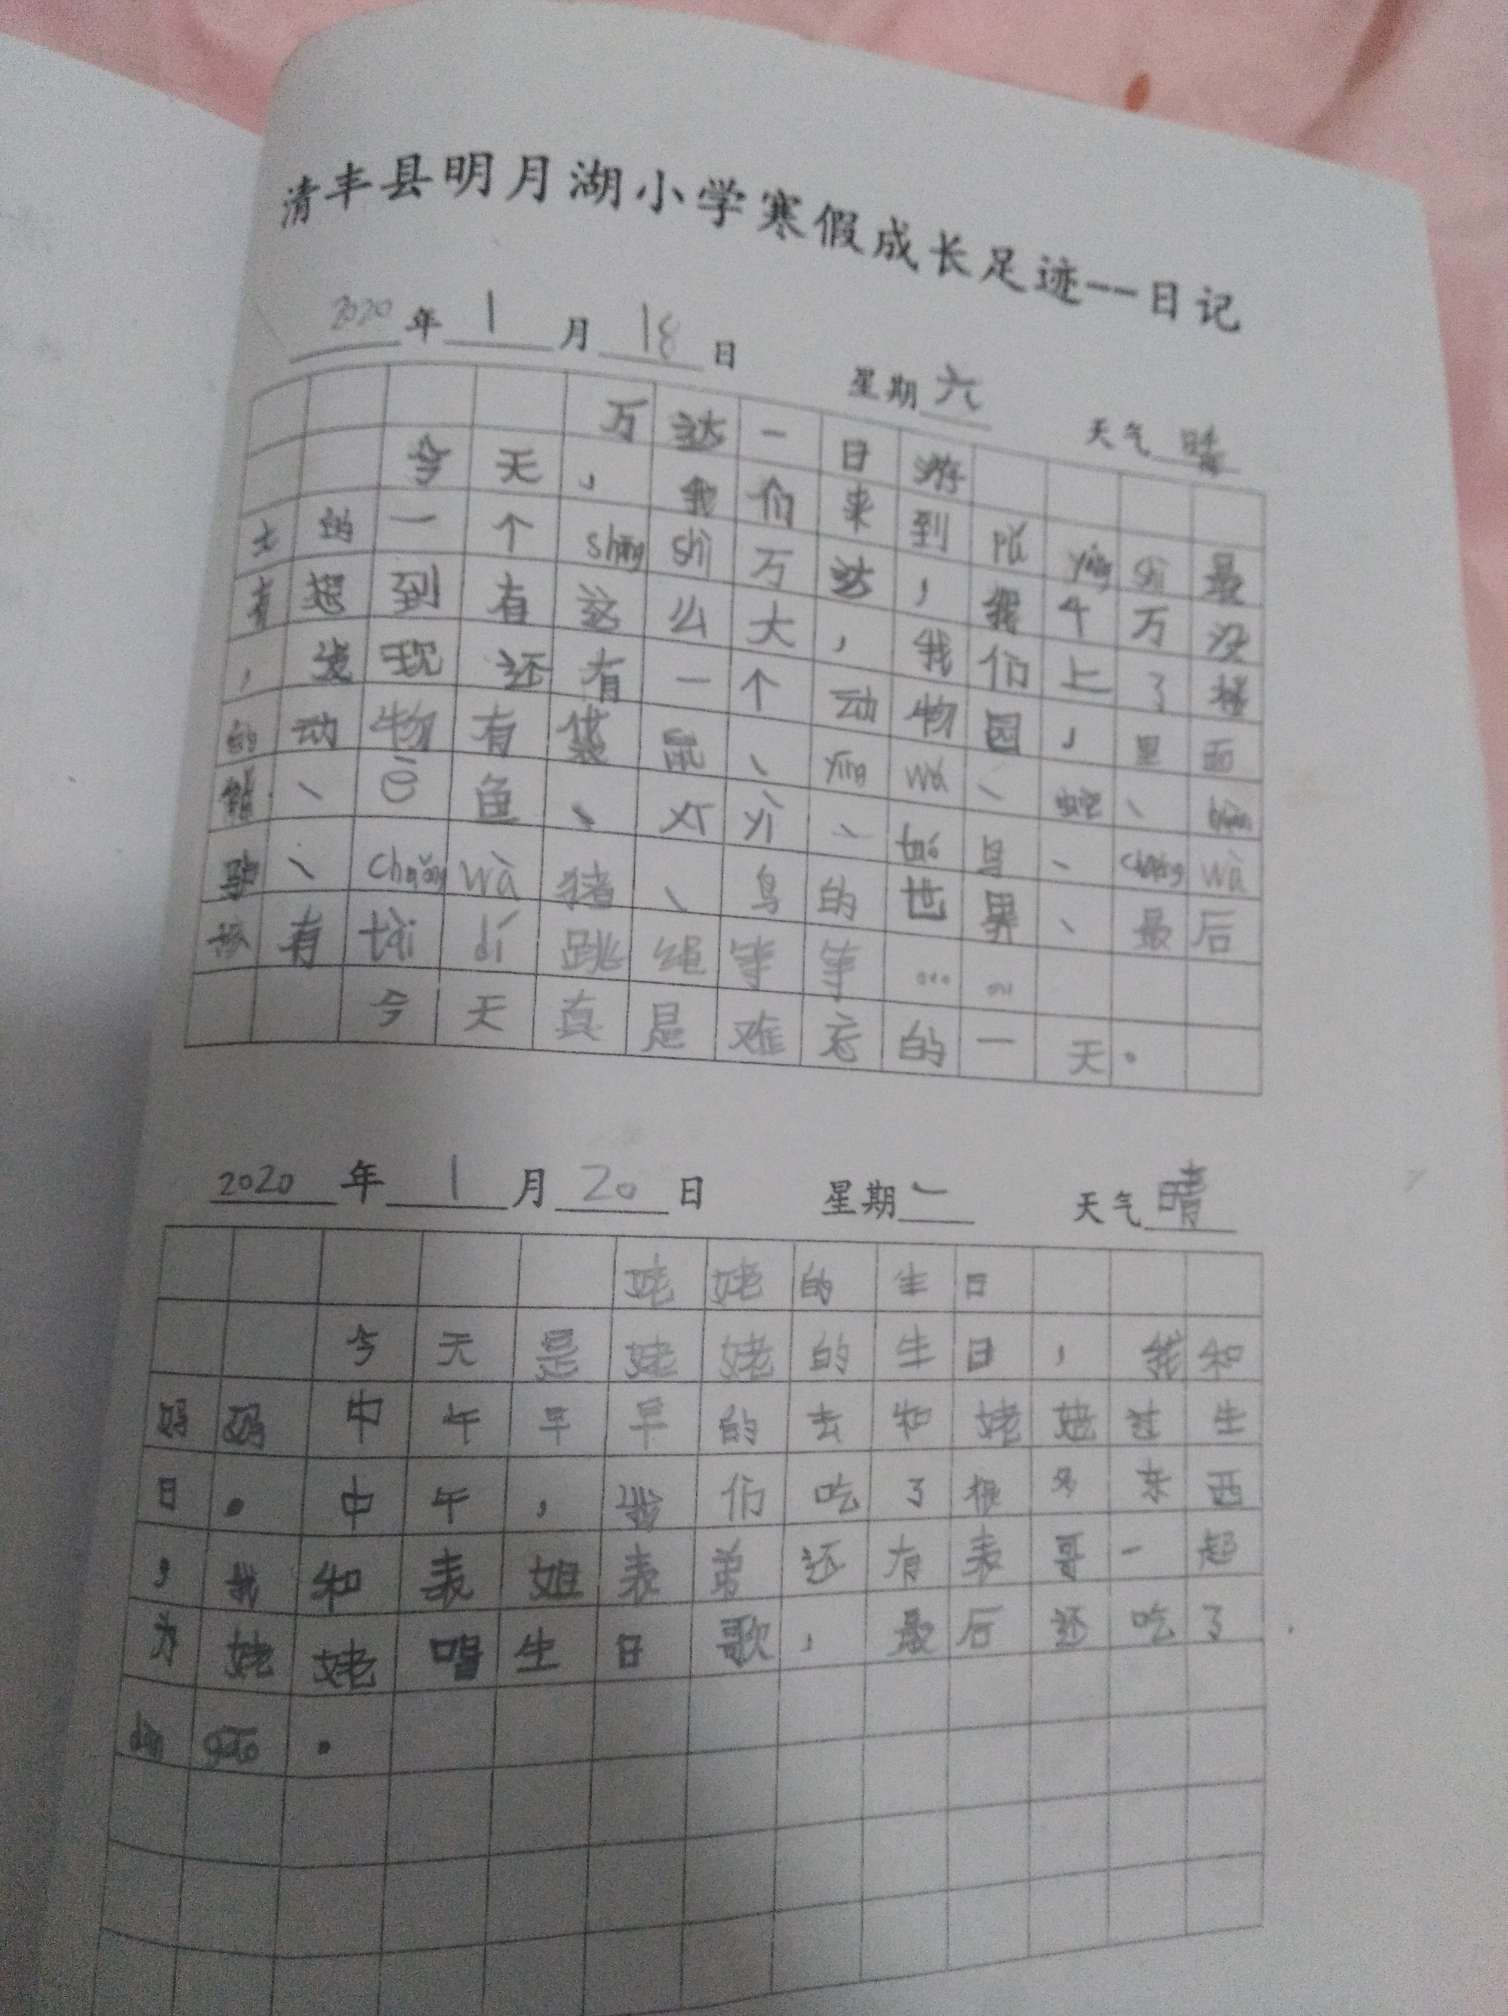 清丰县明月湖小学寒假成长足迹--日记
2020年1月18日 星期六 天气晴
万达一日游
今天，我们来到pú yáng shì最
大的一个shāng shì万达，我千万没
有想到有这么大，我们上了楼
，发现还有一个动物园，里面
的动物有袋鼠、yīng wǔ、蛇、
、è鱼、xī yì、tuó鸟、chǒng wù
、chǒng wù猪、鸟的世界、最后
有tài dí跳绳等等……
今天真是难忘的一天。
2020年1月20日 星期一 天气晴
姥姥的生日
今天是姥姥的生日，我和
妈妈中午早早的去和姥姥过生
日。中午，我们吃了很多东西
，我和表姐表弟还有表哥一起
为姥姥唱生日歌，最后还吃了
dàn gāo。